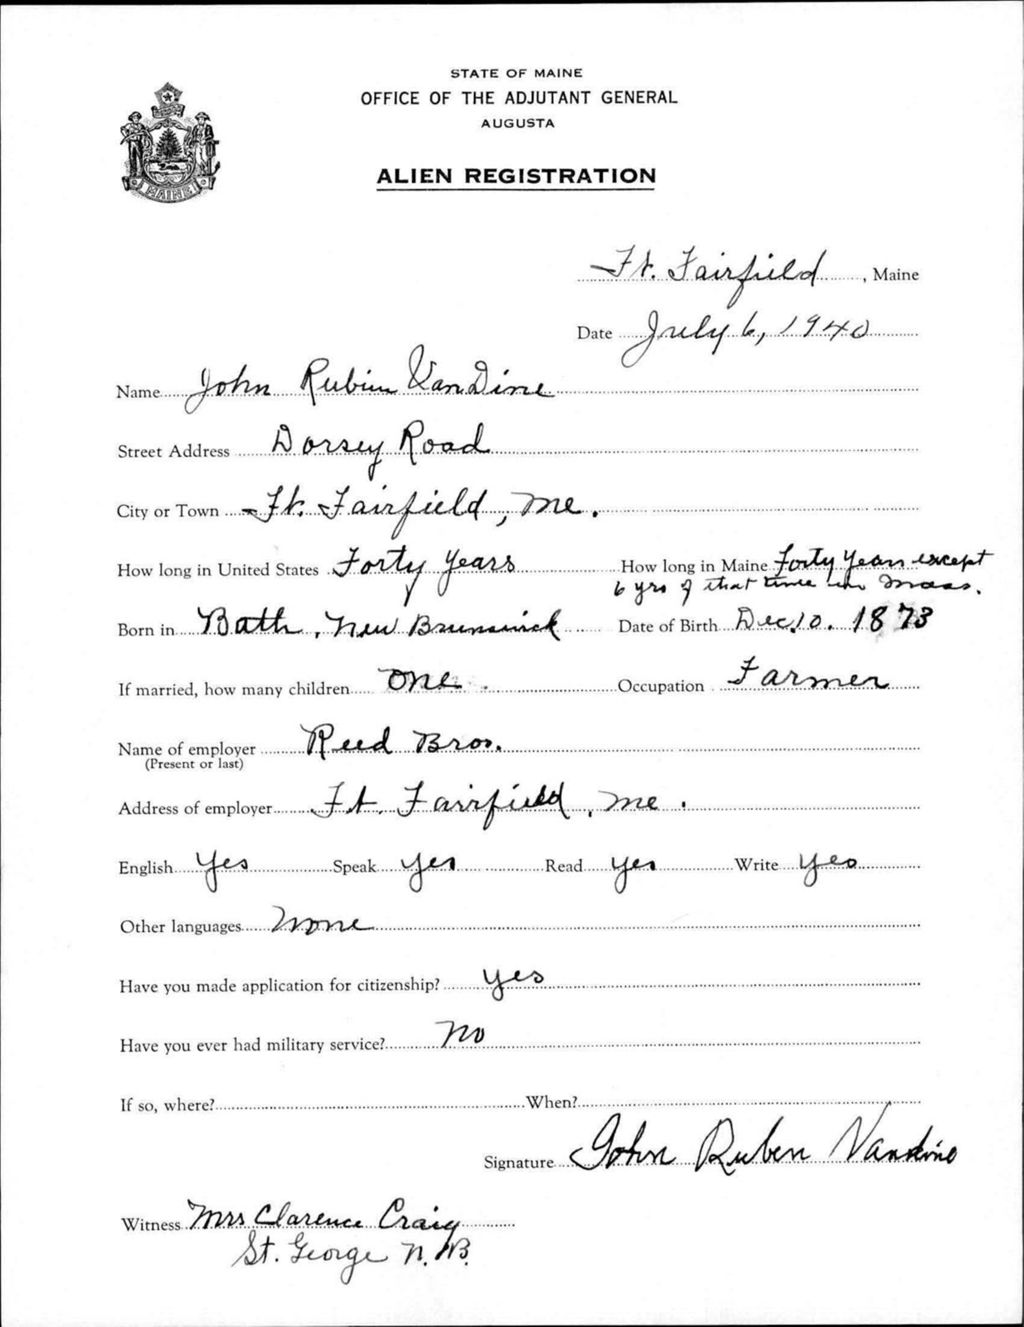 STATE OF MAINE
OFFICE OF THE ADJUTANT GENERAL
AUGUSTA
ALIEN REGISTRATION
MAINE
Ft. Fairfield, Maine
Date July 6, 1940
Name John Rubin VanDine
Street Address Dorsey Road
City or Town Ft. Fairfield, Me.
How long in United States Forty Years How long in Maine Forty Years except
6 yrs of that time in Mass.
Born in Bath, New Brunswick Date of Birth Dec. 10. 1873
If married, how many children One Occupation Farmer
Name of employer Reed Bros.
(Present or last)
Address of employer Ft. Fairfield, Me.
English Yes Speak Yes Read Yes Write Yes
Other languages None
Have you made application for citizenship? Yes
Have you ever had military service? No
If so, where? When?
Signature John Ruben Vandine
Witness Mrs Clarence Craig
St. George N.B.